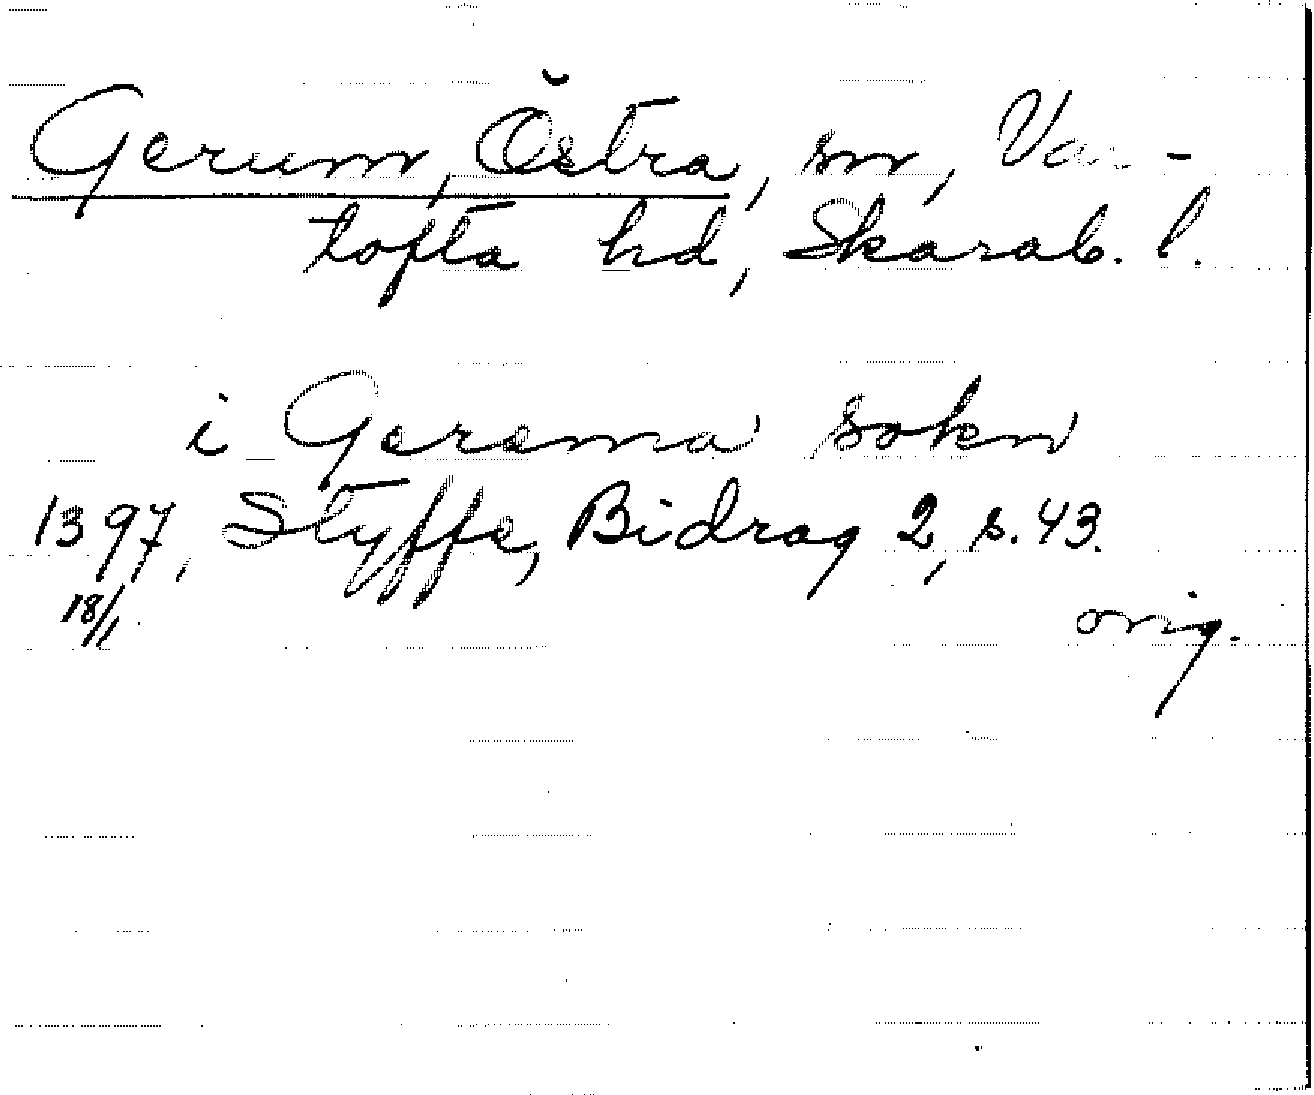 Gerum, Östra, sn, Var-
tofta hd, Skarab. l.
i Gerema sokn
1397, Styffe, Bidrag 2, s. 43.
18/1
orig.